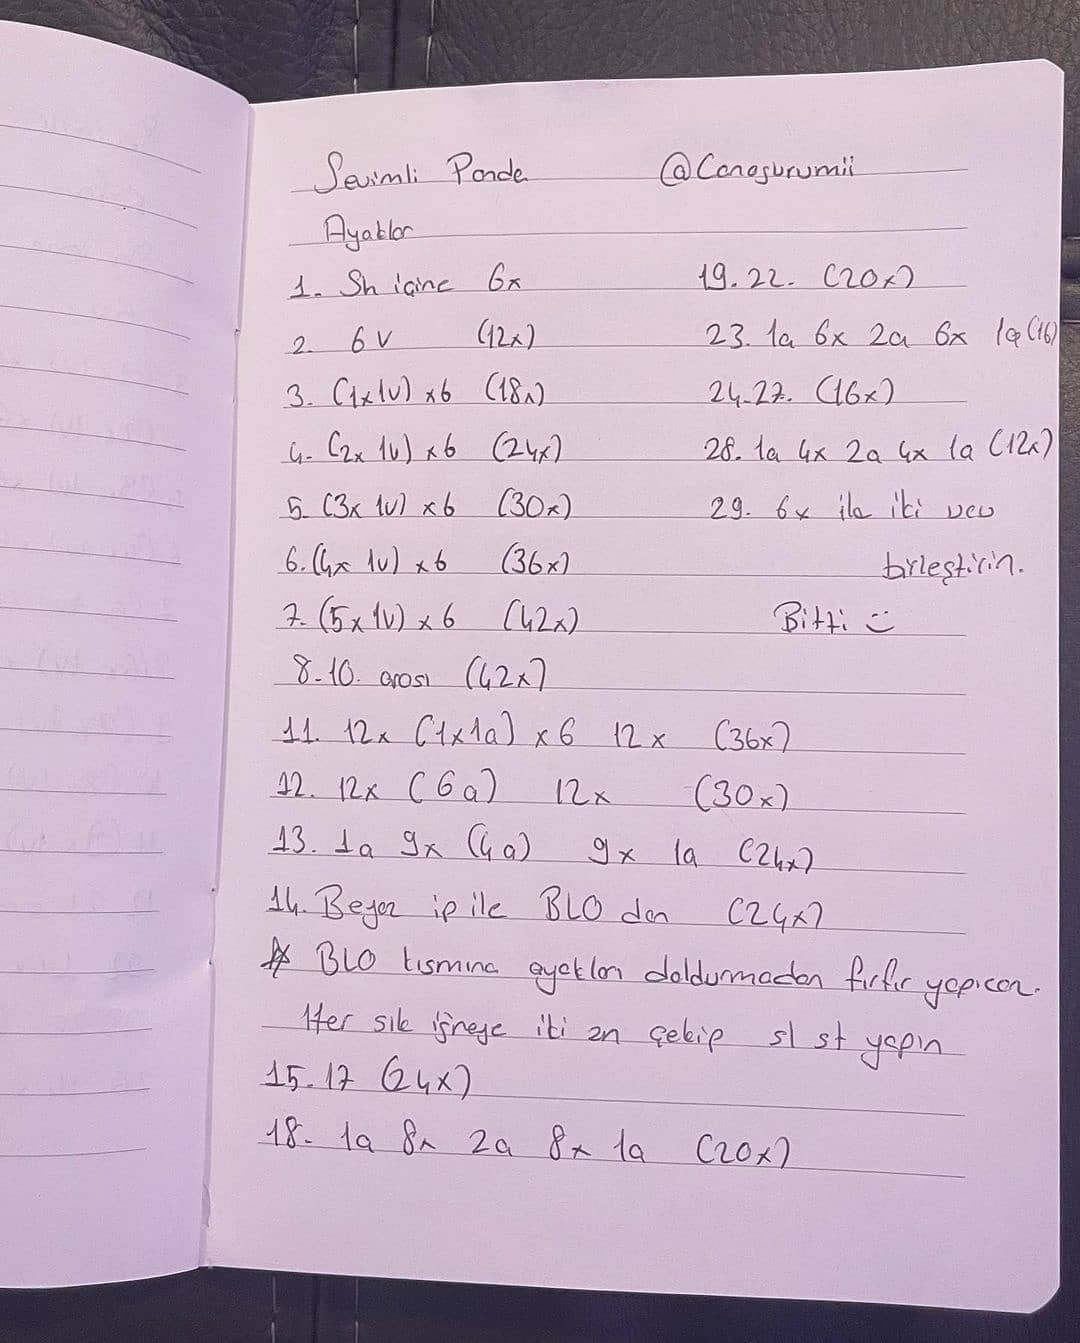 Sevimli Panda @Canagurumii
Ayaklar
1. Sh içine 6x
2. 6v (12x)
3. (1x1v) x6 (18x)
4. (2x 1v) x6 (24x)
5. (3x 1v) x6 (30x)
6. (4x 1v) x6 (36x)
7. (5x 1v) x 6 (42x)
8-10. arası (42x)
11. 12x (1x1a) x6 12x (36x)
12. 12x (6a) 12x (30x)
13. 1a 9x (4a) 9x 1a (24x)
14. Beyaz ip ile BLO dan (24x)
☆ BLO kısmına ayakları doldurmadan fırfır yapıcaz.
Her sık iğneye iki zn çekip sl st yapın
15-17 (24x)
18- 1a 8x 2a 8x 1a (20x)
19.22. (20x)
23. 1a 6x 2a 6x 1a (16)
24-27. (16x)
28. 1a 4x 2a 4x 1a (12x)
29. 6x ile iki ucu
birleştirin.
Bitti :)